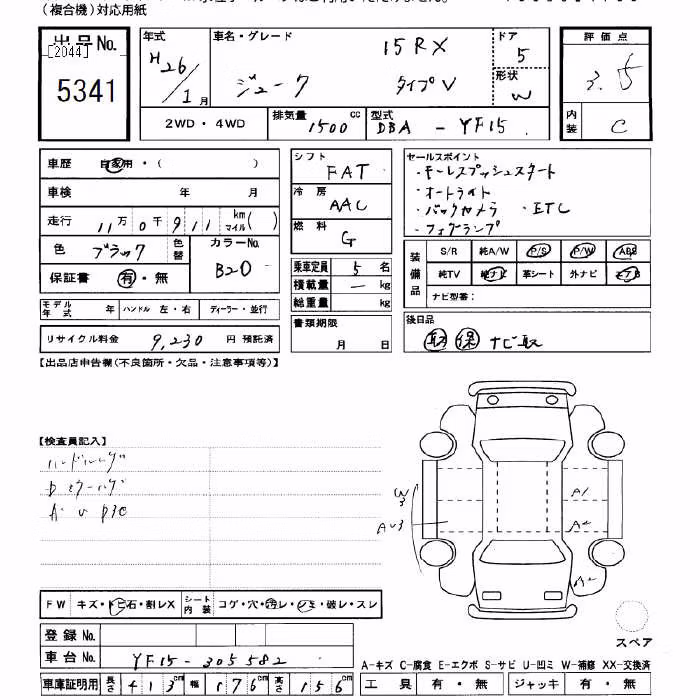 (複合機)対応用紙
出品No.
[2044]
5341
年式
H26/1月
車名・グレード
15RX
ジューク タイプV
ドア
5
形状
W
2WD・4WD
排気量
1500cc
型式
DBA - YF15
評価点
3.5
内装
C
車歴 自家用・( )
車検 年 月
走行 11万0千911 km マイル( )
色 ブラック 色替
カラーNo.
B20
保証書 有・無
モデル年式 年 ハンドル 左・右 ディーラー・並行
リサイクル料金 9,230 円 預託済
シフト
FAT
冷房
AAC
燃料
G
乗車定員 5名
積載量 — kg
総重量 kg
書類期限
月 日
セールスポイント
・キーレスプッシュスタート
・オートライト
・バックカメラ ・ETC
・フォグランプ
装備品
S/R 純A/W P/S P/W ABS
純TV 純ナビ 革シート 外ナビ エアB
ナビ型番:
後日品
取 保 ナビ取
【出品店申告欄(不良箇所・欠品・注意事項等)】
【検査員記入】
W3
AU3
A1
A2
A2
FW キズ・トビ石・割レX シート内装 コゲ・穴・汚レ・シミ・破レ・スレ
登録No.
車台No. YF15-305582
車庫証明用 長さ 413cm 幅 176cm 高さ 156
スペア
A-キズ C-腐食 E-エクボ S-サビ U-凹ミ W-補修 XX-交換済
工具 有・無 ジャッキ 有・無